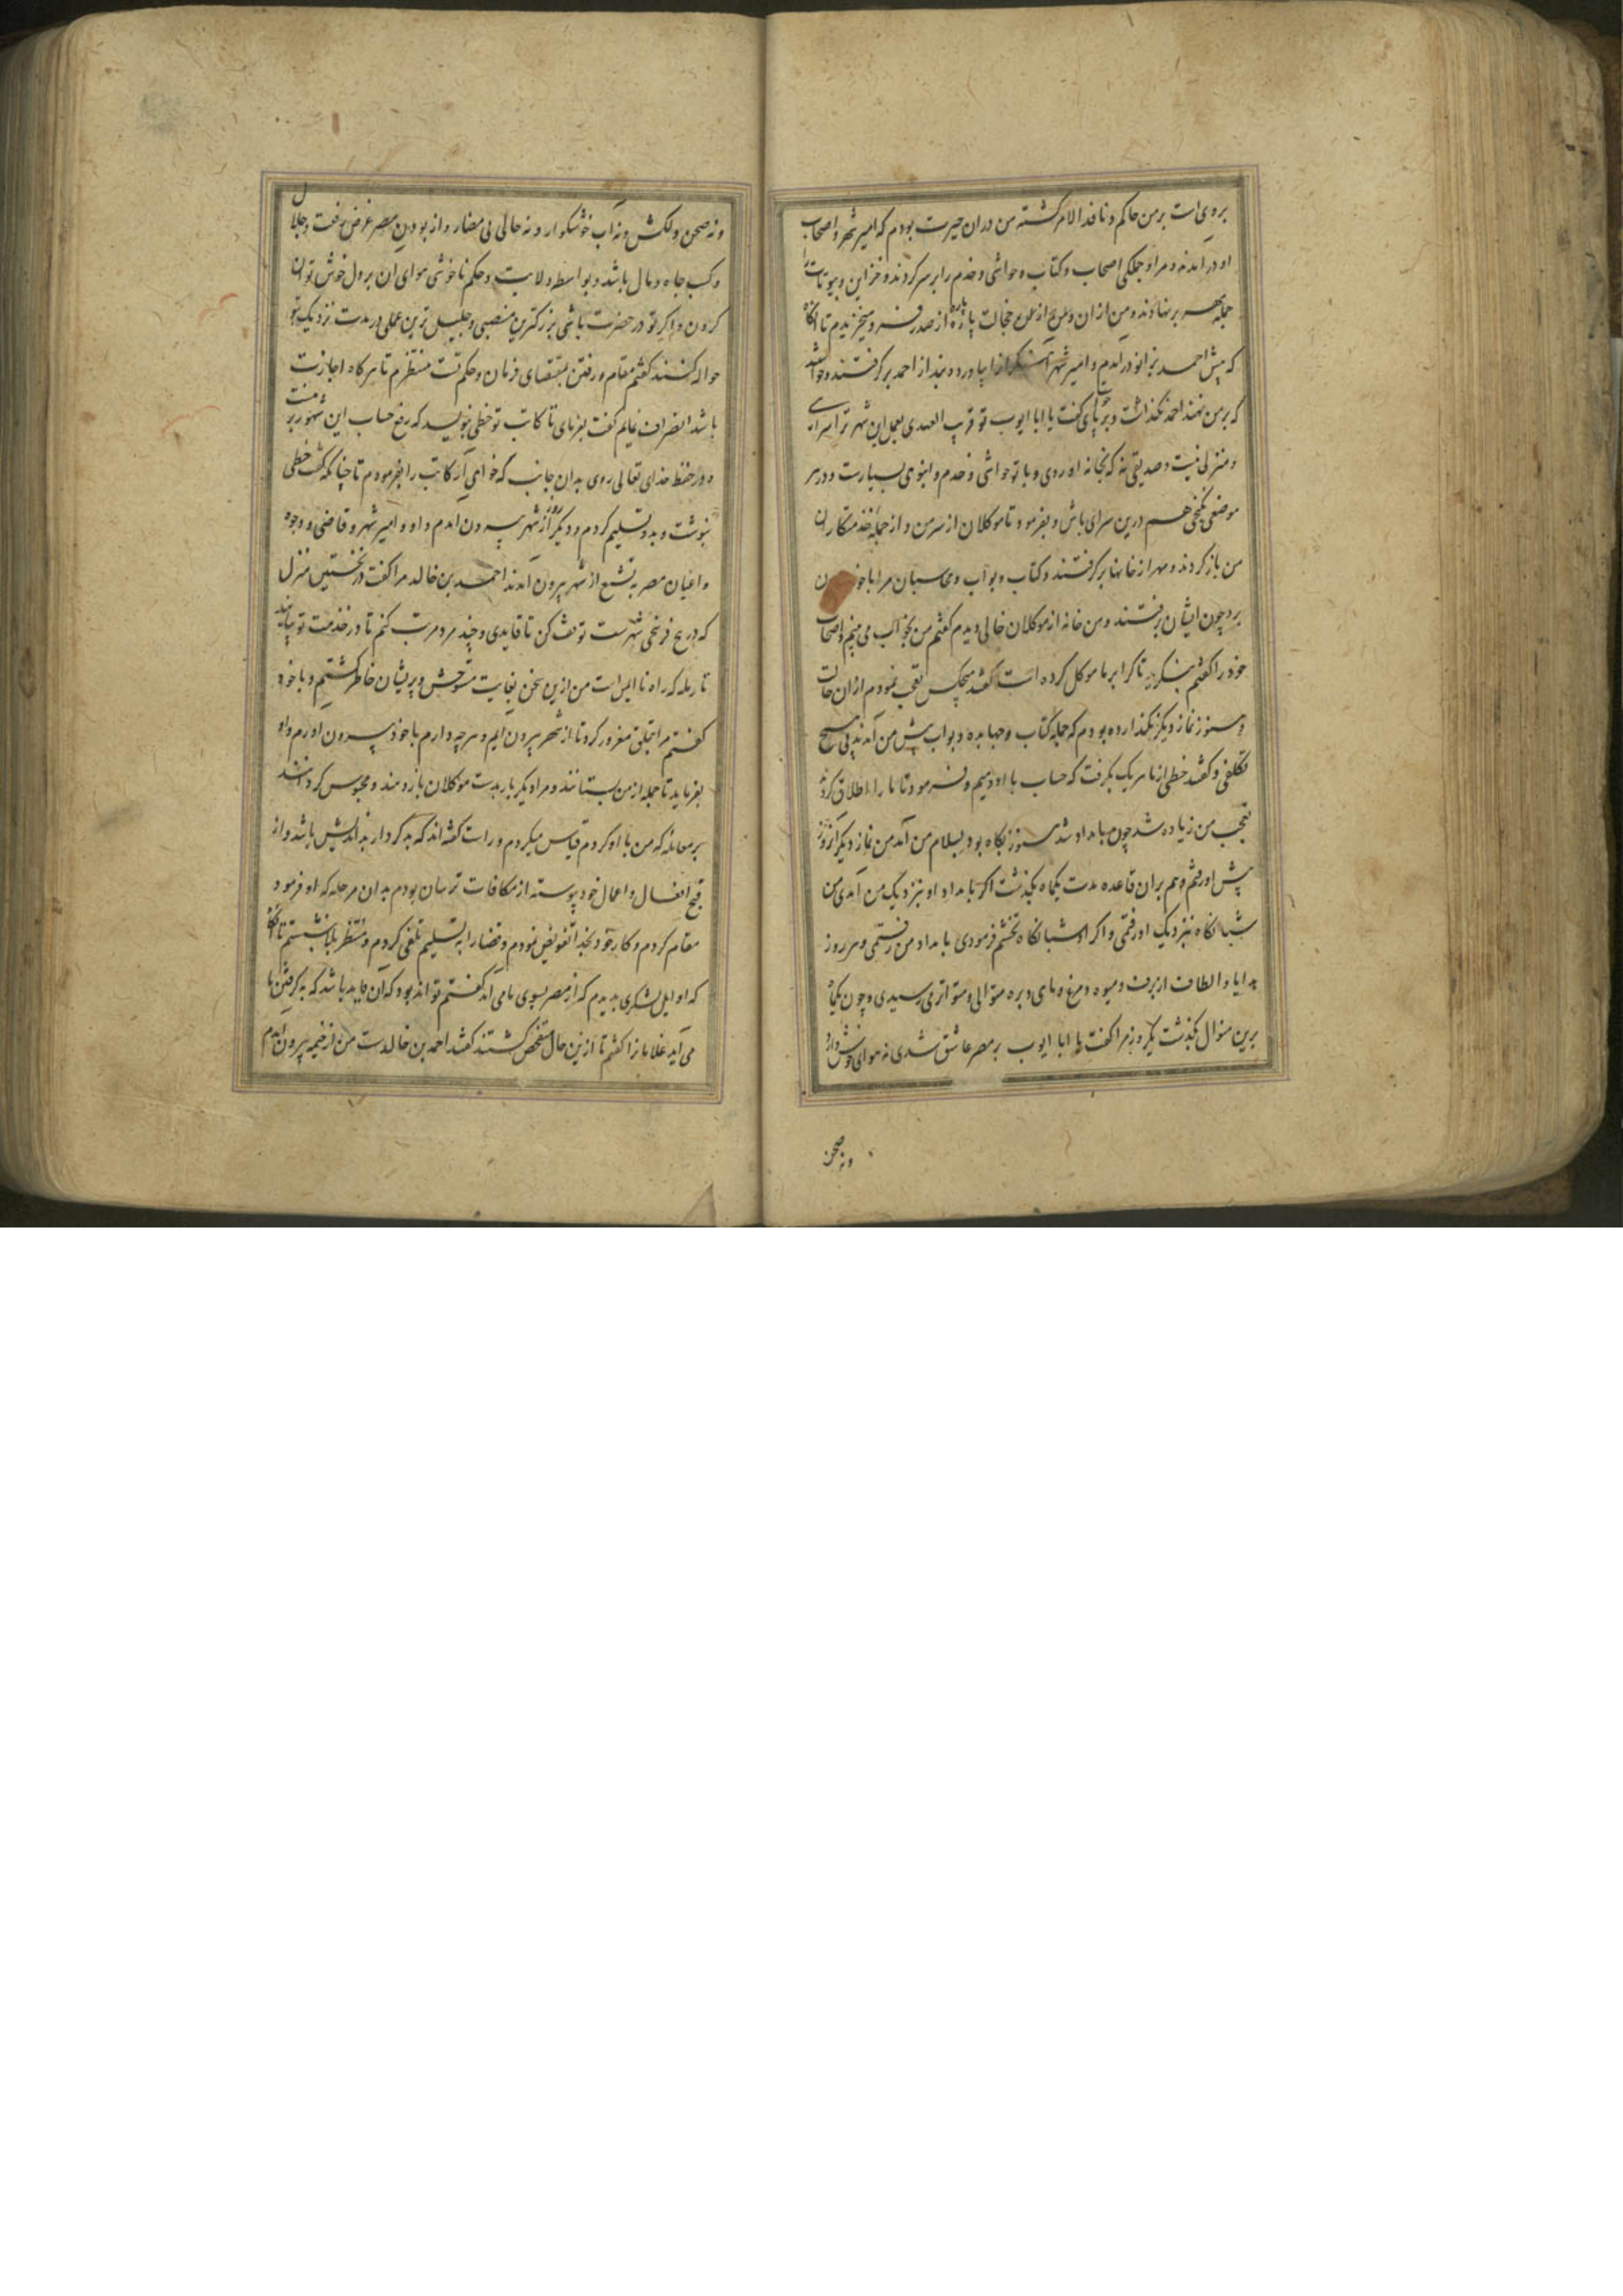 بروی است بر من حاکم و نافذ الامر گشته من دران حیرت بودم که امیر شهر و اصحاب
او در امدند و مرا و جملگی اصحاب و کتاب و حواشی و خدم را بر سر کردند و خزاین و بیوتات را
جمله مهر بر نهادند و من از ان و از خجالت پاره پاره از صدر فرو میخزیدم تا انگاه
که پیش احمد بزانو در امدم و امیر شهر را بیاورد و بند از احمد بر گرفتند و خواستند
که بر من نهند احمد نگذاشت و بر پای گفت یا ابا ایوب تو قریب العهدی بعمل این شهر ترا سرای
و منزلی نیست و صدیقی نه که بخانه او روی و با تو حواشی و خدم و انبوهی بسیارست و در هر
موضعی نگنجی هم درین سرای باش و بفرمود تا موکلان از سر من و از جمله خدمتکاران
من باز کردند و مهر از خانها بر گرفتند و کتاب و بواب و محاسبان مرا با خود
برد چون ایشان برفتند و من خانه از موکلان خالی دیدم گفتم من بخواب می بینم و اصحاب
خود را گفتم بنگرید تا کرا بر ما موکل کرده است گفتند هیچکس تعجب نمودم ازان حالت
و هنوز نماز دیگر نگذارده بودم که جمله کتاب و جهابذه و بواب پیش من آمدند بی هیچ
تکلفی و گفتند خطی از ما هر یک بگرفت که حساب با او دهیم و فرمود تا ما را اطلاق کردند
تعجب من زیاده شد چون بامداد شد هنوز بگاه بود بسلام من آمد من نماز دیگر آنروز
پیش او رفتم و هم بران قاعده مدت یکماه بگذشت اگر بامداد او بنزدیک من آمدی من
شبانگاه بنزدیک او رفتمی و اگر او شبانگاه تجشم فرمودی بامداد من رفتمی و هر روز
هدایا و الطاف از برف و میوه و مرغ و ماهی و بره متوالی و متواتر می رسیدی و چون یکماه
برین منوال بگذشت یکروز مرا گفت یا ابا ایوب بر مصر عاشق شدی نه هوای خوش دارد
ونه صحن
ونه صحن دلکش ونه آب خوشگوار و نه حالی بی مضار و از بودن مصر غرض رفعت و جلال
و کسب جاه و مال باشد و بواسطه ولایت و حکم ناخوشی هوای ان بر دل خوش توان
کردن و اگر تو در حضرت باشی بزرگترین منصبی و جلیل ترین عملی در مدت نزدیک بتو
حواله کنند گفتم مقام و رفتن بمقتضای فرمان و حکم تست منتظرم تا هر گاه اجازت
باشد انصراف نمایم گفت بفرمای تا کاتب تو خطی بنویسد که رفع حساب این شهور بر منست
و در حفظ خدای تعالی روی بدان جانب که خواهی آر کاتب را بفرمودم تا چنانکه گفت خطی
نبوشت و بدو تسلیم کردم و دیگر روز از شهر بیرون امدم و او و امیر شهر و قاضی و وجوه
و اعیان مصر به تشیع از شهر بیرون آمدند احمد بن خالد مرا گفت در نخستین منزل
که در پنج فرسخی شهرست توقف کن تا قایدی و چند مرد مرتب کنم تا در خدمت تو بیایند
تا رمله که راه نا ایمن است من ازین سخن بغایت متوحش و پریشان خاطر گشتم و با خود
گفتم مرا بتملق مغرور کرد تا از شهر بیرون ایم و هر چه دارم با خود بیرون اورم و او
بفرماید تا جمله از من بستانند و مرا دیگر بار بدست موکلان باز دهند و محبوس گردانند
بر معامله که من با او کردم قیاس میکردم و راست گفته اند که بد کردار بد اندیش باشد و از
قبح افعال و اعمال خود پیوسته از مکافات ترسان بودم بدان مرحله که او فرمود
مقام کردم و کار خود بخدا تفویض نمودم و قضا را به تسلیم تلقی کردم و منتظر بلا بنشستم تا انگاه
که اوایل لشکری بدیدم که از مصر بسوی ما می آمد گفتم تواند بود که آن قاید باشد که به گرفتن ما
می آید غلامانرا گفتم تا ازین حال متفحص گشتند گفتند احمد بن خالدست من از خیمه بیرون امدم